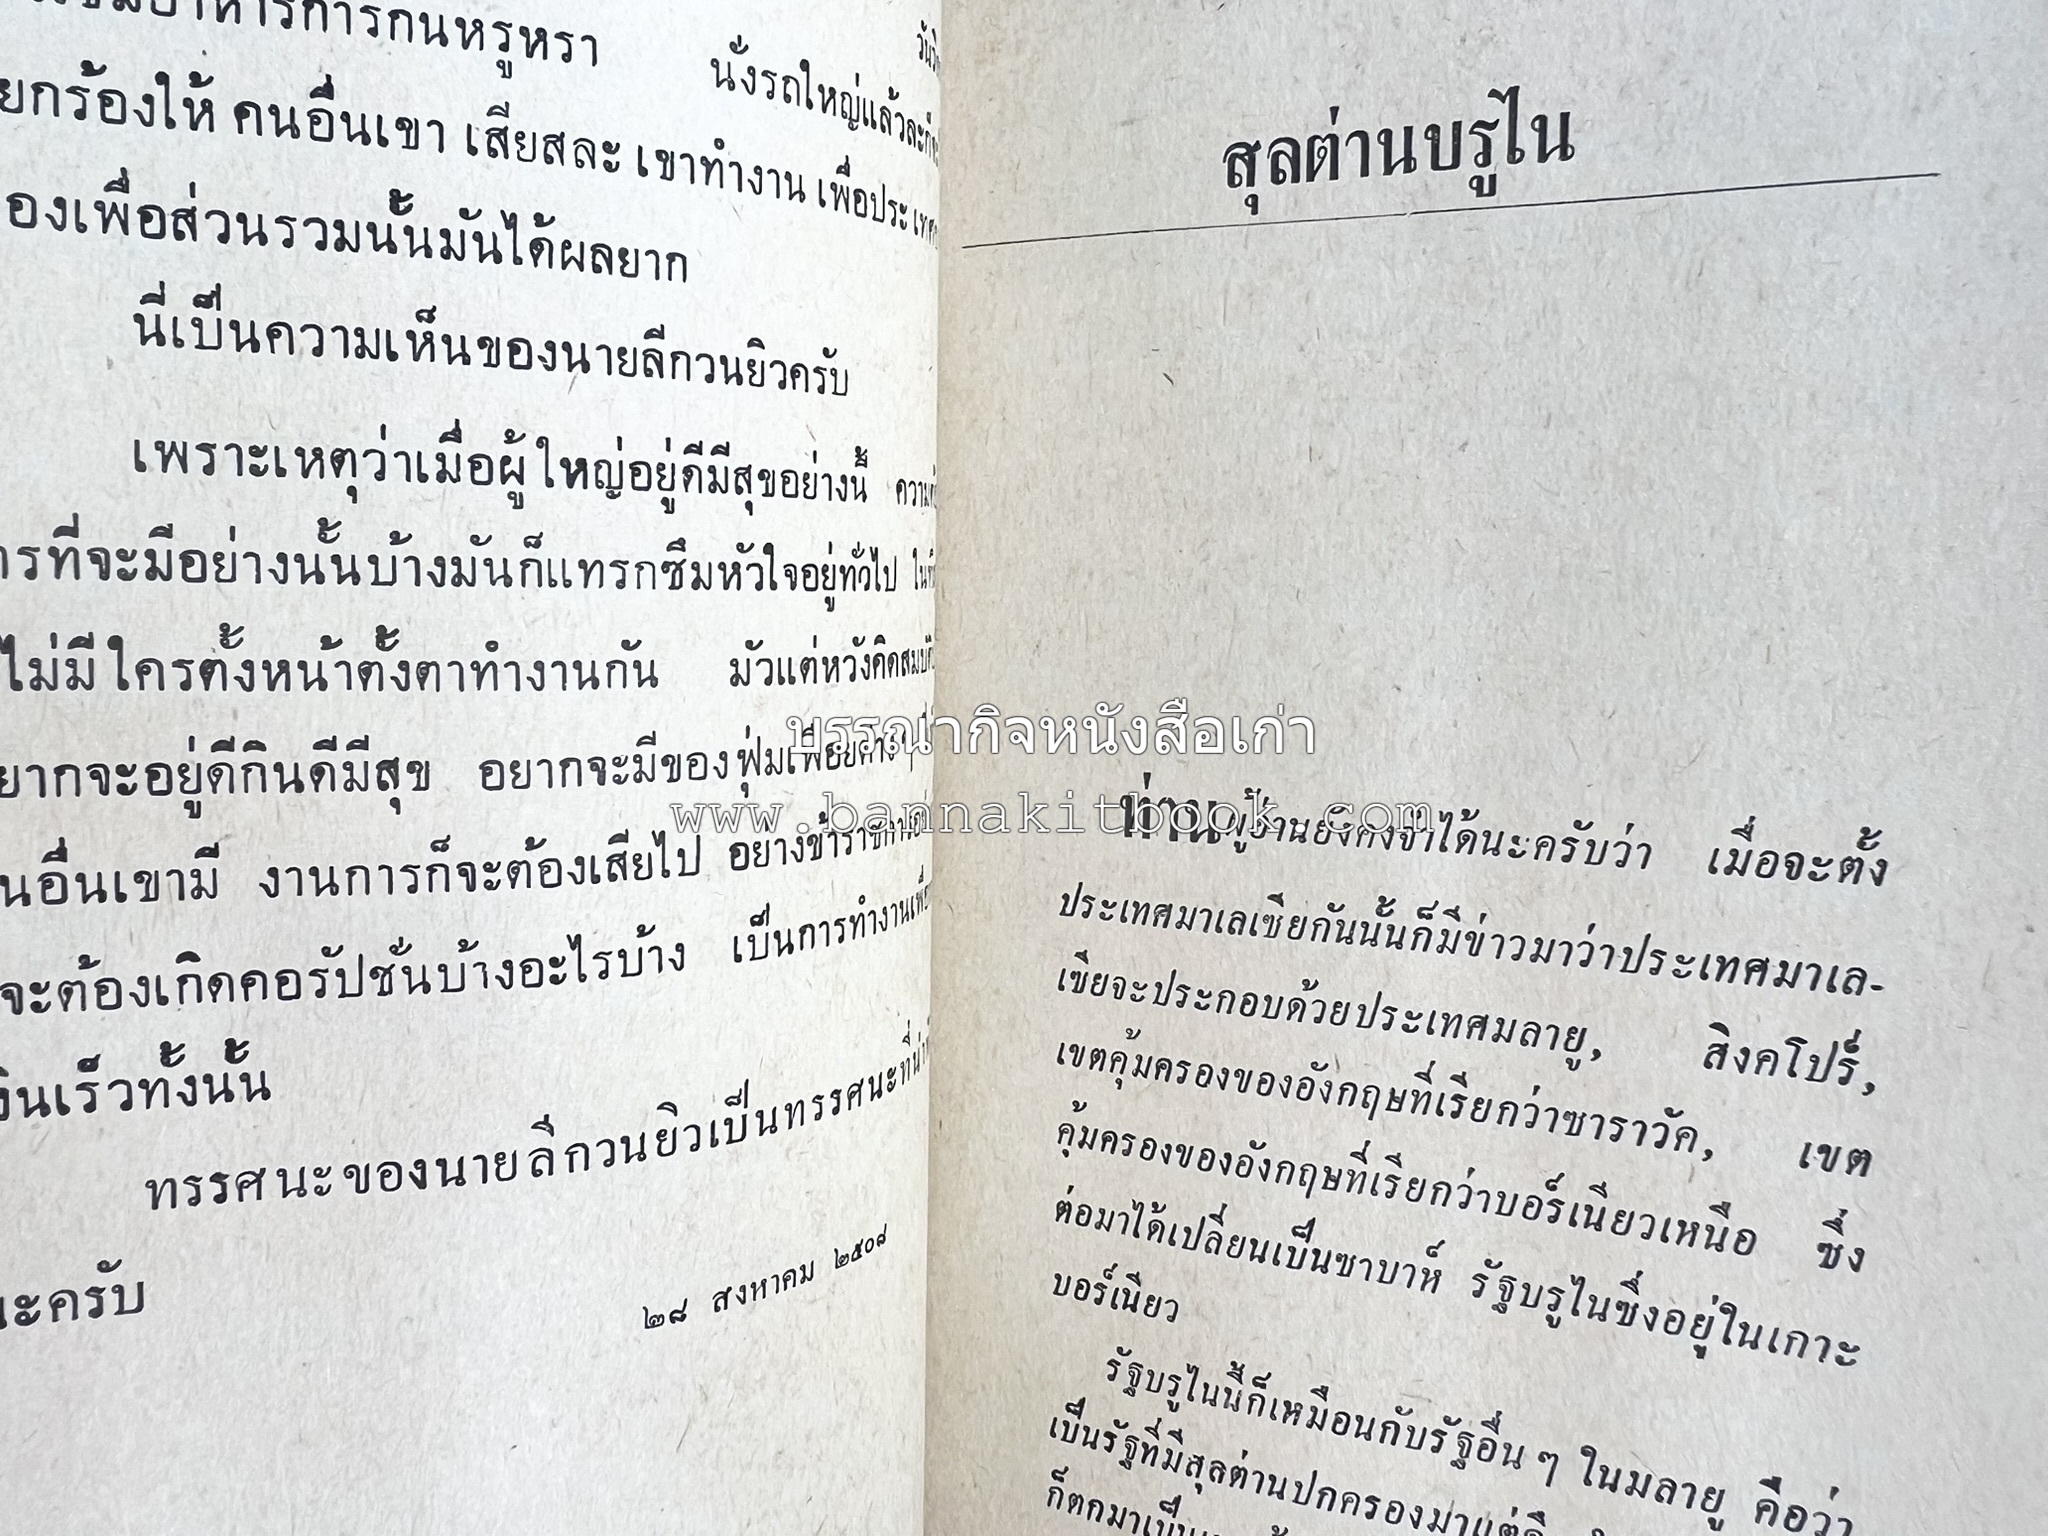 อาหารการกินหรูหรา นั่งรถใหญ่แล้วละก็
ยกร้องให้ คนอื่นเขา เสียสละ เขาทำงาน เพื่อประเทศ
องเพื่อส่วนรวมนั้นมันได้ผลยาก
นี่เป็นความเห็นของนายลีกวนยิวครับ
เพราะเหตุว่าเมื่อผู้ใหญ่อยู่ดีมีสุขอย่างนี้
ารที่จะมีอย่างนั้นบ้างมันก็แทรกซึมหัวใจอยู่ทั่วไป
ไม่มีใครตั้งหน้าตั้งตาทำงานกัน มัวแต่หวังคิดสมบัติ
ยากจะอยู่ดีกินดีมีสุข อยากจะมีของฟุ่มเฟือยต่างๆ
นอื่นเขามี งานการก็จะต้องเสียไป อย่างข้าราชการ
จะต้องเกิดคอรัปชั่นบ้างอะไรบ้าง เป็นการทำงาน
งินเร็วทั้งนั้น
ทรรศนะของนายลีกวนยิวเป็นทรรศนะที่
นะครับ
๒๘ สงหาคม ๒๕๐๘
สุลต่านบรูไน
ท่านผู้อ่านยังคงจำได้นะครับว่า เมื่อจะตั้ง
ประเทศมาเลเซียกันนั้นก็มีข่าวมาว่าประเทศมาเล-
เซียจะประกอบด้วยประเทศมลายู, สิงคโปร์,
เขตคุ้มครองของอังกฤษที่เรียกว่าซาราวัค, เขต
คุ้มครองของอังกฤษที่เรียกว่าบอร์เนียวเหนือ ซึ่ง
ต่อมาได้เปลี่ยนเป็นซาบาห์ รัฐบรูไนซึ่งอยู่ในเกาะ
บอร์เนียว
รัฐบรูไนนี้ก็เหมือนกับรัฐอื่น ๆ ในมลายู คือว่า
เป็นรัฐที่มีสุลต่านปกครองมาแต่
ก็ตกมาเป็น
บรรณากิจหนังสือเก่า
www.bannakitbook.com